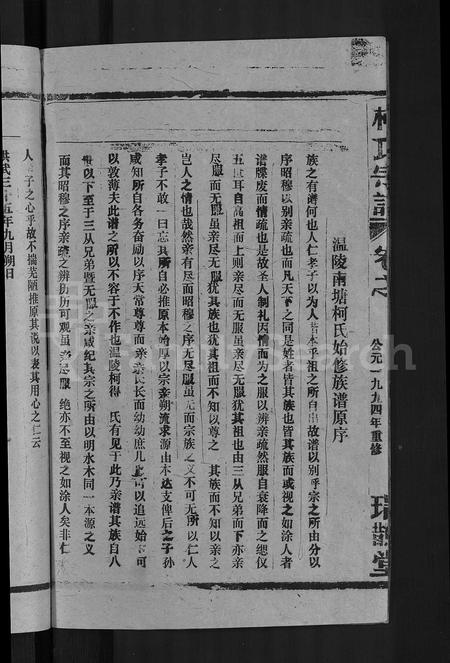 柯氏宗譜
卷之
公元一九九四年重修
瑞鵲堂
温陵南塘柯氏始修族谱原序
族之有譜何也人仁孝子以为人昔本乎祖之所自出故谱以别乎宗之所由分以
序昭穆以别亲疏也而凡天下之同是姓者皆其族也皆其族而或视之如涂人者
谱牒废而情疏也是故圣人制礼因情而为之服以辨亲疏然服自衰降而之缌仅
五世耳自高祖而上则亲尽而无服虽亲尽无服犹其祖也由三从兄弟而下亦亲
尽服而无服虽亲尽无服犹其族也犹其祖而不知以尊之 其族而不知以亲之
岂人之情也哉然亲有尽而昭穆之序无尽服虽无而宗族之义不可无所以仁人
孝子不敢一日忘其所自必推原本始厚以宗亲朔流求源由本达支俾后之子孙
咸知所自各务奋励以序天常尊尊而亲亲长长而幼幼庶几 可以追远始 可
以敦薄夫此谱之所以不容于不作也温陵柯得 氏有见于此乃亲谱其族自八
世以下至于三从兄弟暨无服之亲咸纪其宗之所由以明水木同一本源之义
而其昭穆之序亲疏之辨历历可观虽 尽服 绝亦不至视之如涂人矣非仁
人孝子之心乎故不揣芜陋推原其说以表其用心之仁云
洪武三十五年九月朔日